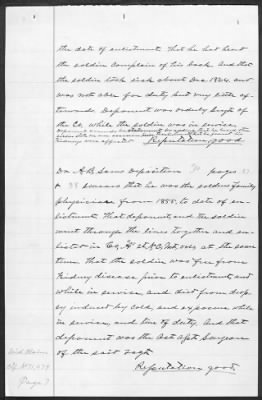 the date of enlistment. That he had heard
the soldier complain of his back. And that
the soldier took sick about Dec 1864, and
was not able for duty but very little af-
terwards. Deponent was orderly Sergt of
the Co. while the soldier was in service.
Reputation, good
Dr. A. B. Sams Deposition pages 37
& 38 swears that he was the soldiers family
physician from 1855, to date of en-
listment. That deponent and the soldier
went through the lines together and en-
listed in Co, at the same
time. That the soldier was free from
Kidney disease prior to enlistment, and
while in service, and died from drop-
sy induced by cold, and exposure while
in service, and line of duty. And that
deponent was the Asst Surgeon
of the said regt.
Reputation, good.
Wid. Claim
Page 7